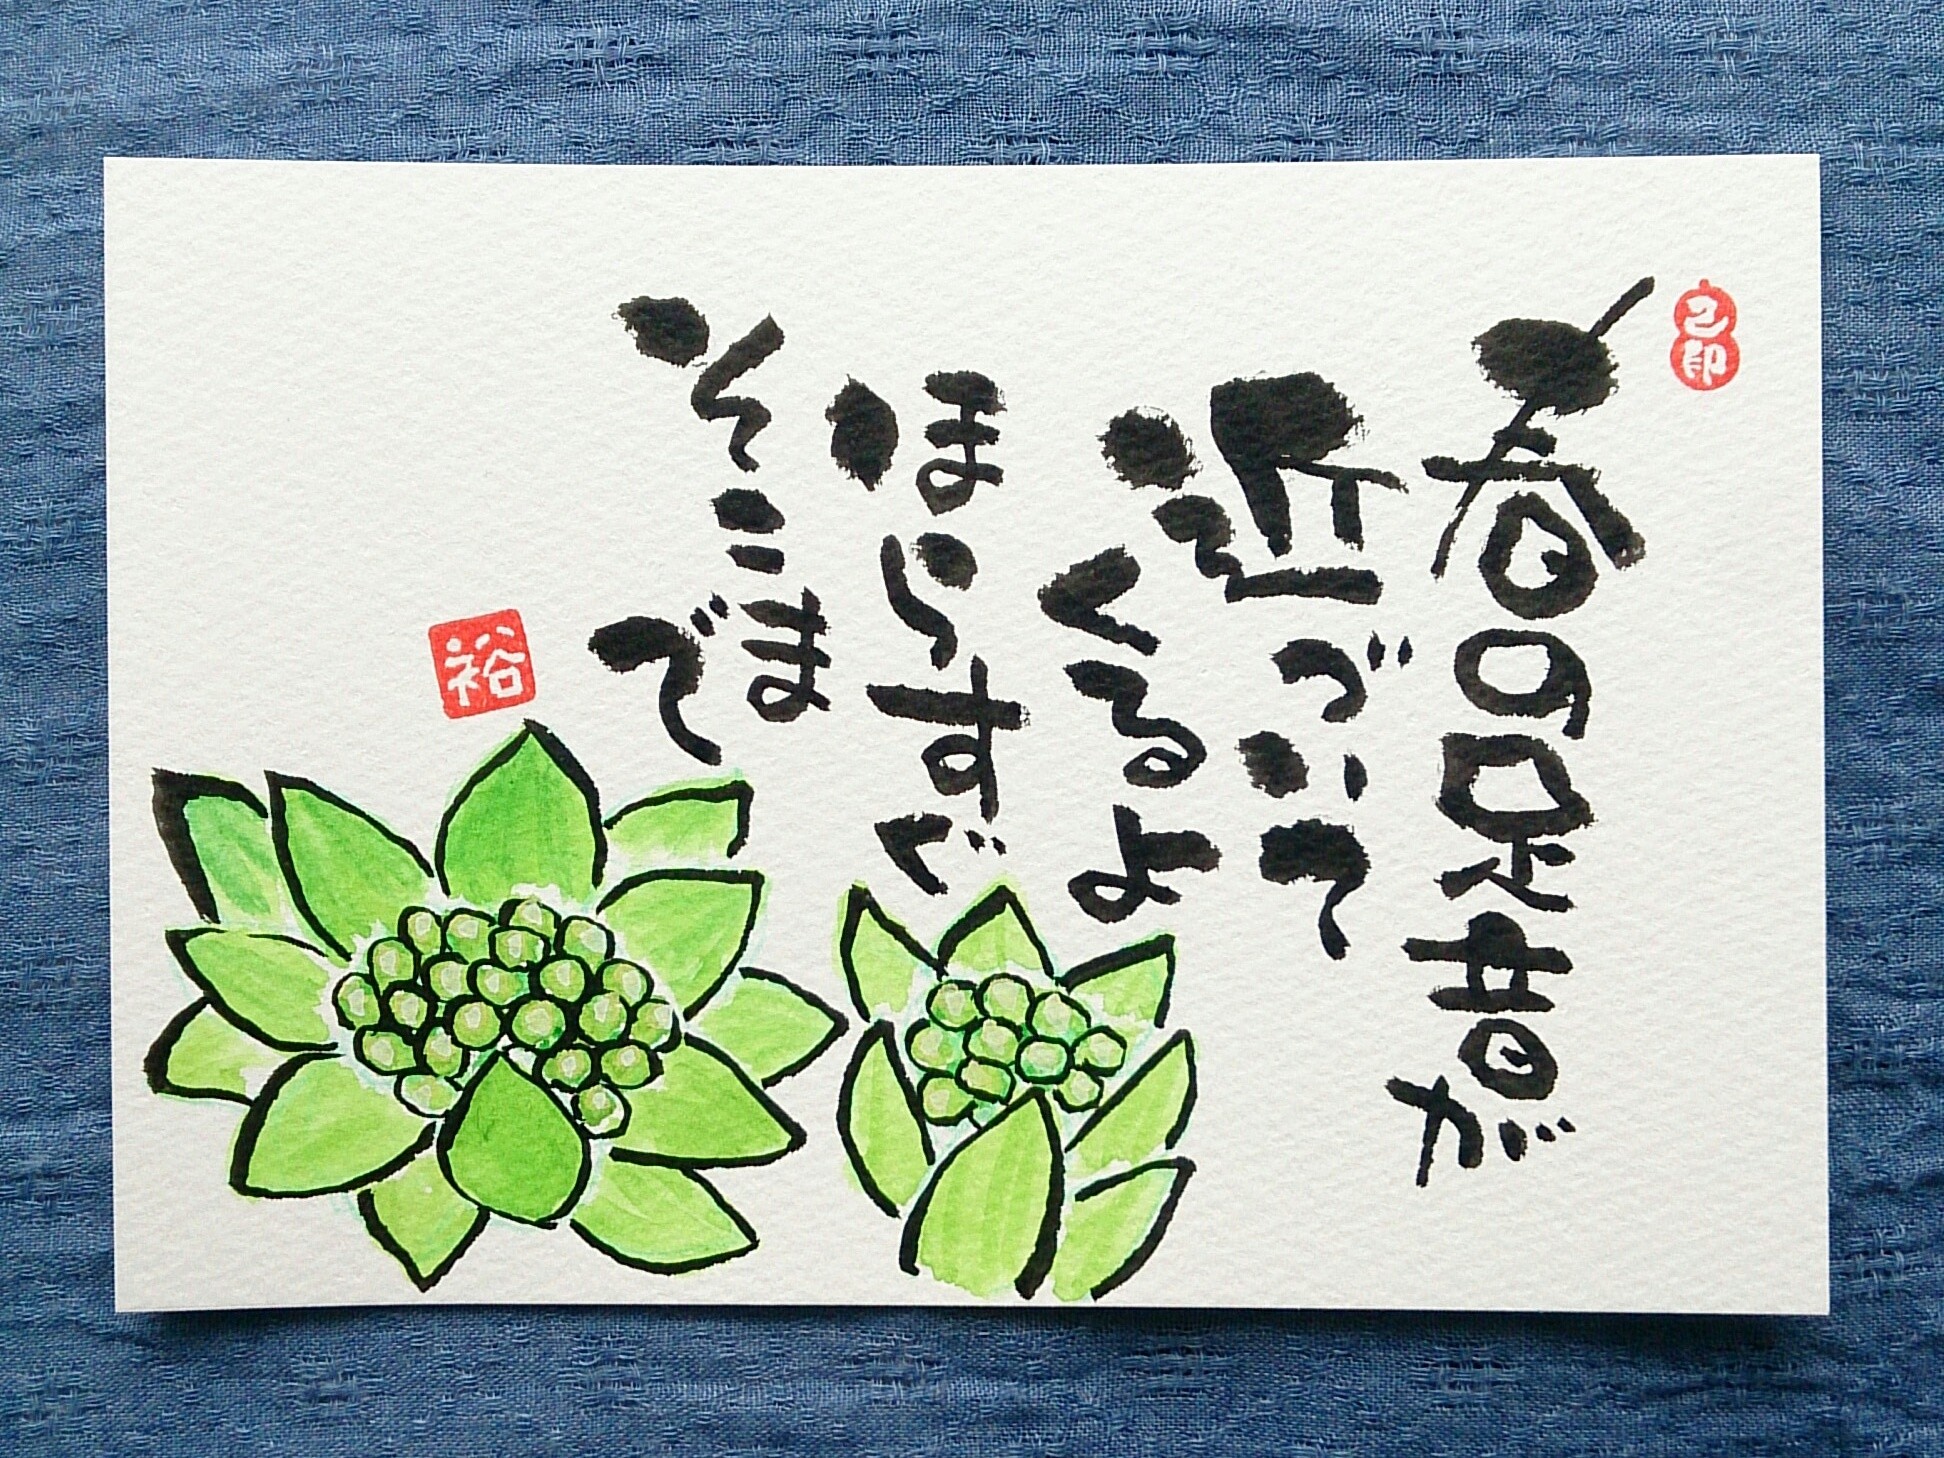 春の足音が
近づいて
くるよ
ほらすぐ
そこま
で
裕